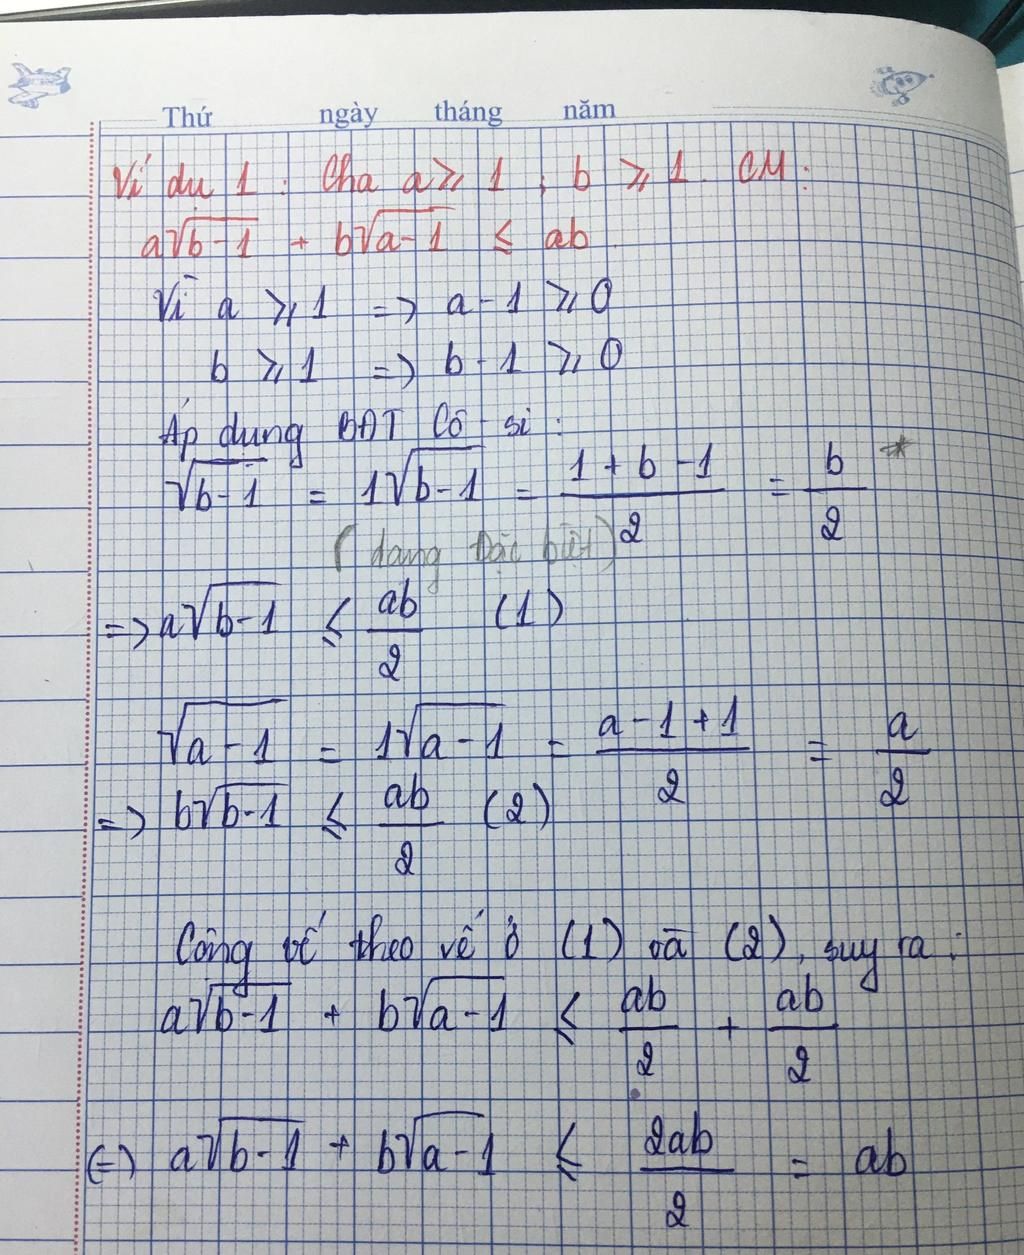 Thứ ngày tháng năm
Ví dụ 1 : Cho a ≥ 1 ; b ≥ 1. CM :
a√(b-1) + b√(a-1) ≤ ab
Vì a ≥ 1 => a - 1 ≥ 0
b ≥ 1 => b - 1 ≥ 0
Áp dụng BĐT Cô - si :
√(b-1) = 1√(b-1) = (1 + b - 1)/2 = b/2 *
( dạng Đặc biệt )
=> a√(b-1) ≤ ab/2 (1)
√(a-1) = 1√(a-1) = (a - 1 + 1)/2 = a/2
=> b√(b-1) ≤ ab/2 (2)
Cộng vế theo vế ở (1) và (2), suy ra :
a√(b-1) + b√(a-1) ≤ ab/2 + ab/2
(=) a√(b-1) + b√(a-1) ≤ 2ab/2 = ab